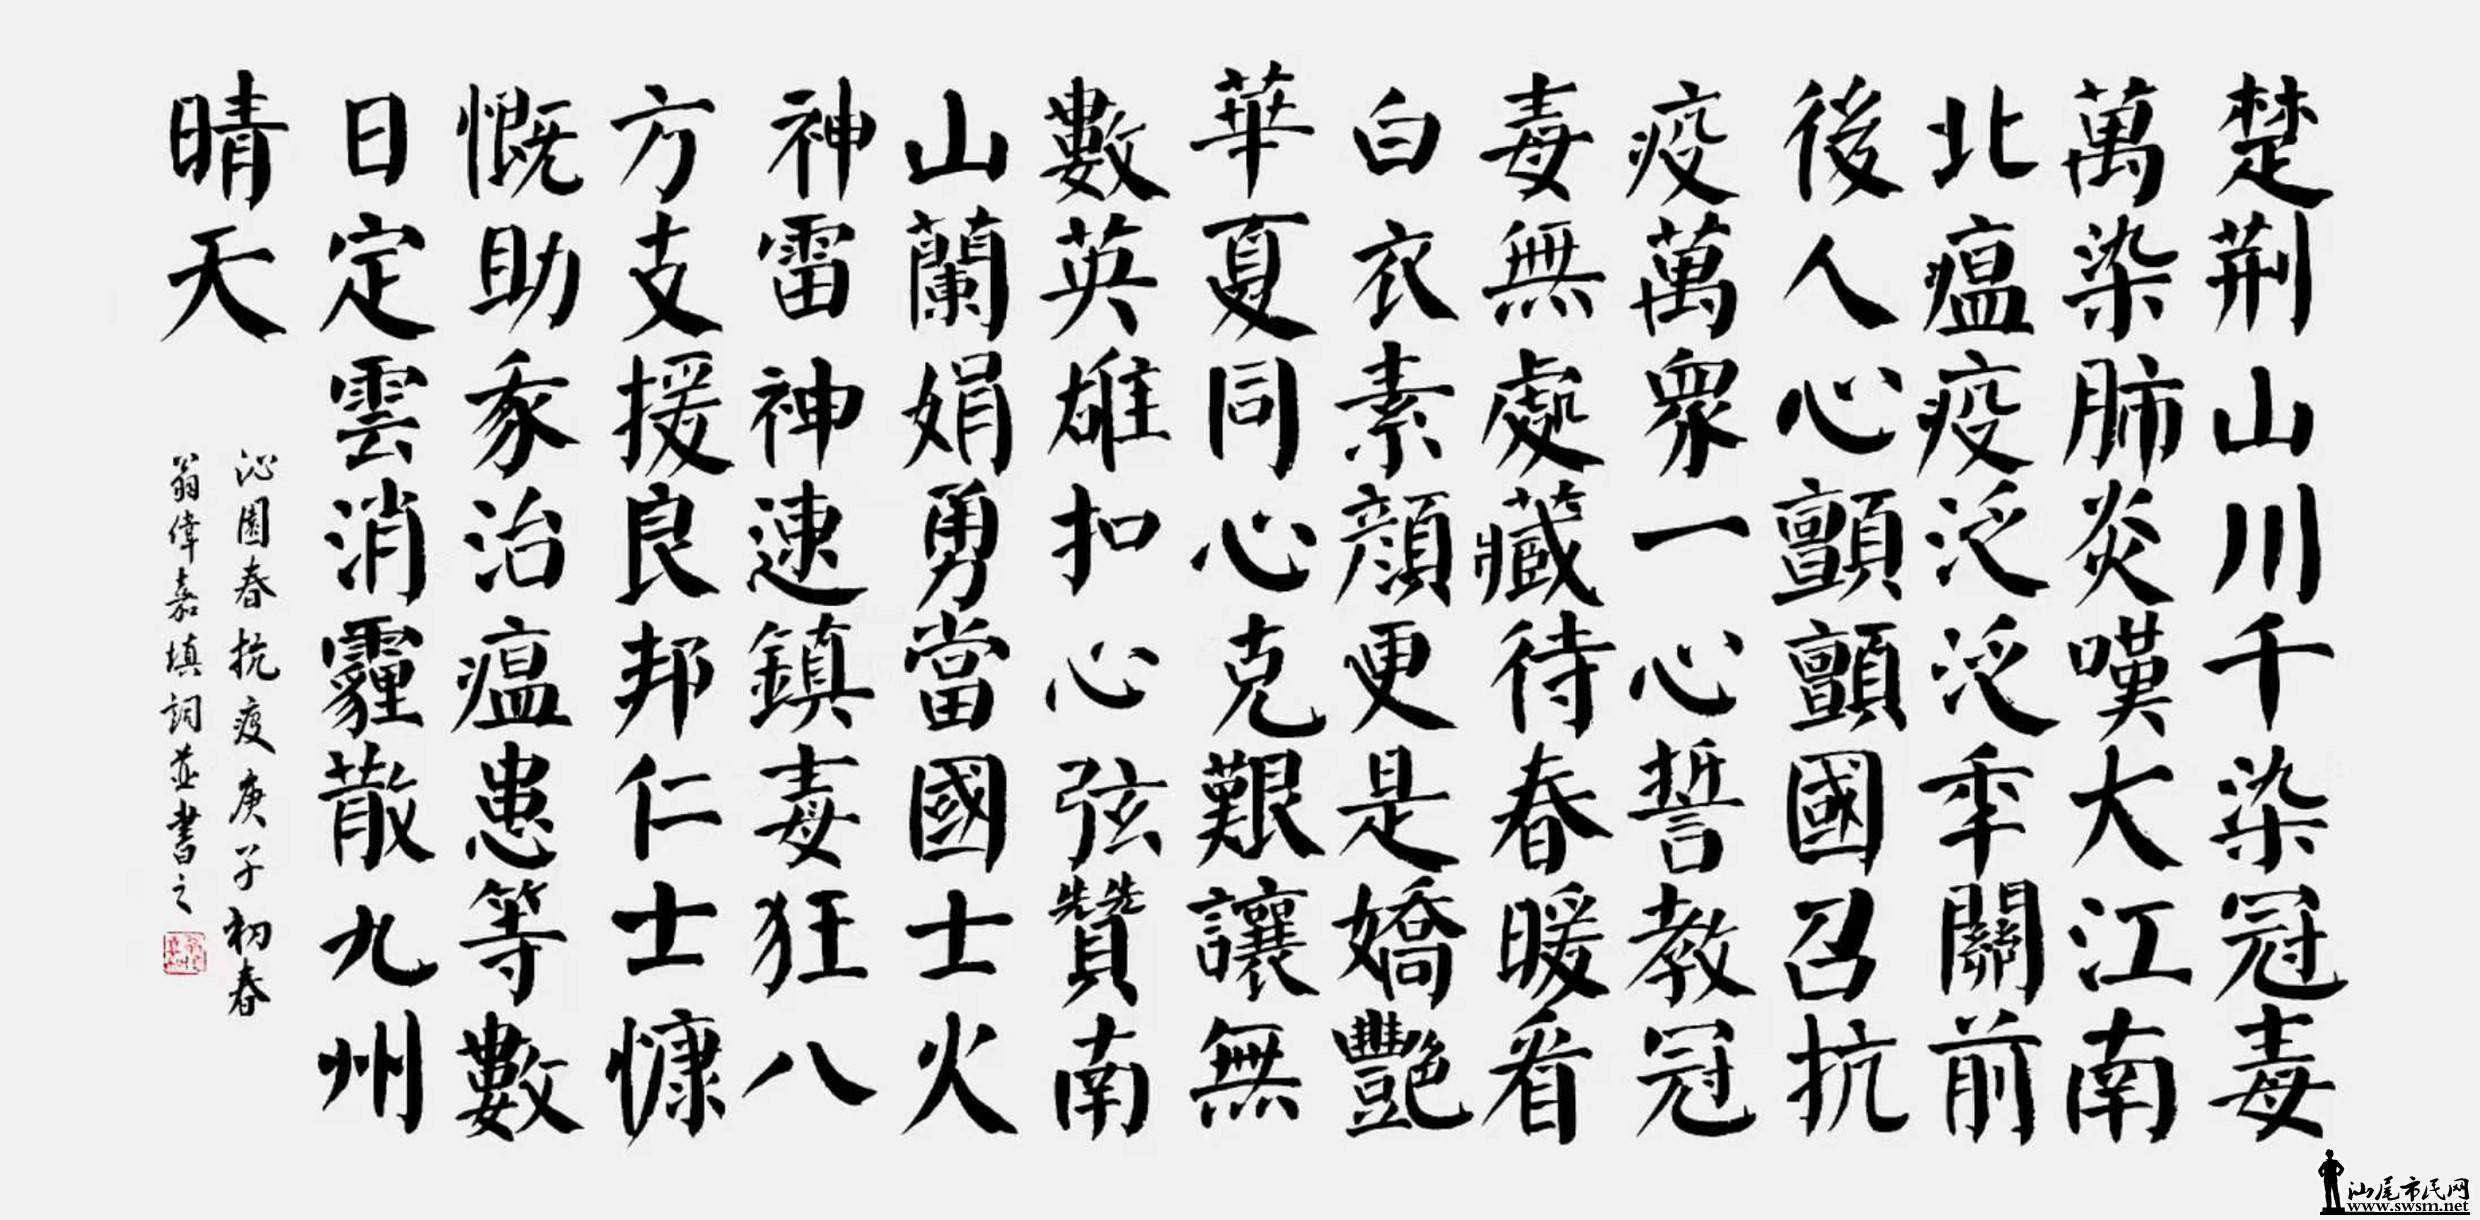 楚荆山川千染冠毒
萬染肺炎嘆大江南
北瘟疫泛泛季關前
後人心顫顫國召抗
疫萬衆一心誓教冠
毒無處藏待春暖看
白衣素顔更是嬌艷
華夏同心克艱讓無
數英雄扣心弦贊南
山蘭娟勇當國士火
神雷神速鎮毒狂八
方支援良邦仁士慷
慨助家治瘟患等數
日定雲消霾散九州
晴天
沁園春抗疫庚子初春
翁偉嘉填詞並書之
汕尾市民网
www.swsm.net